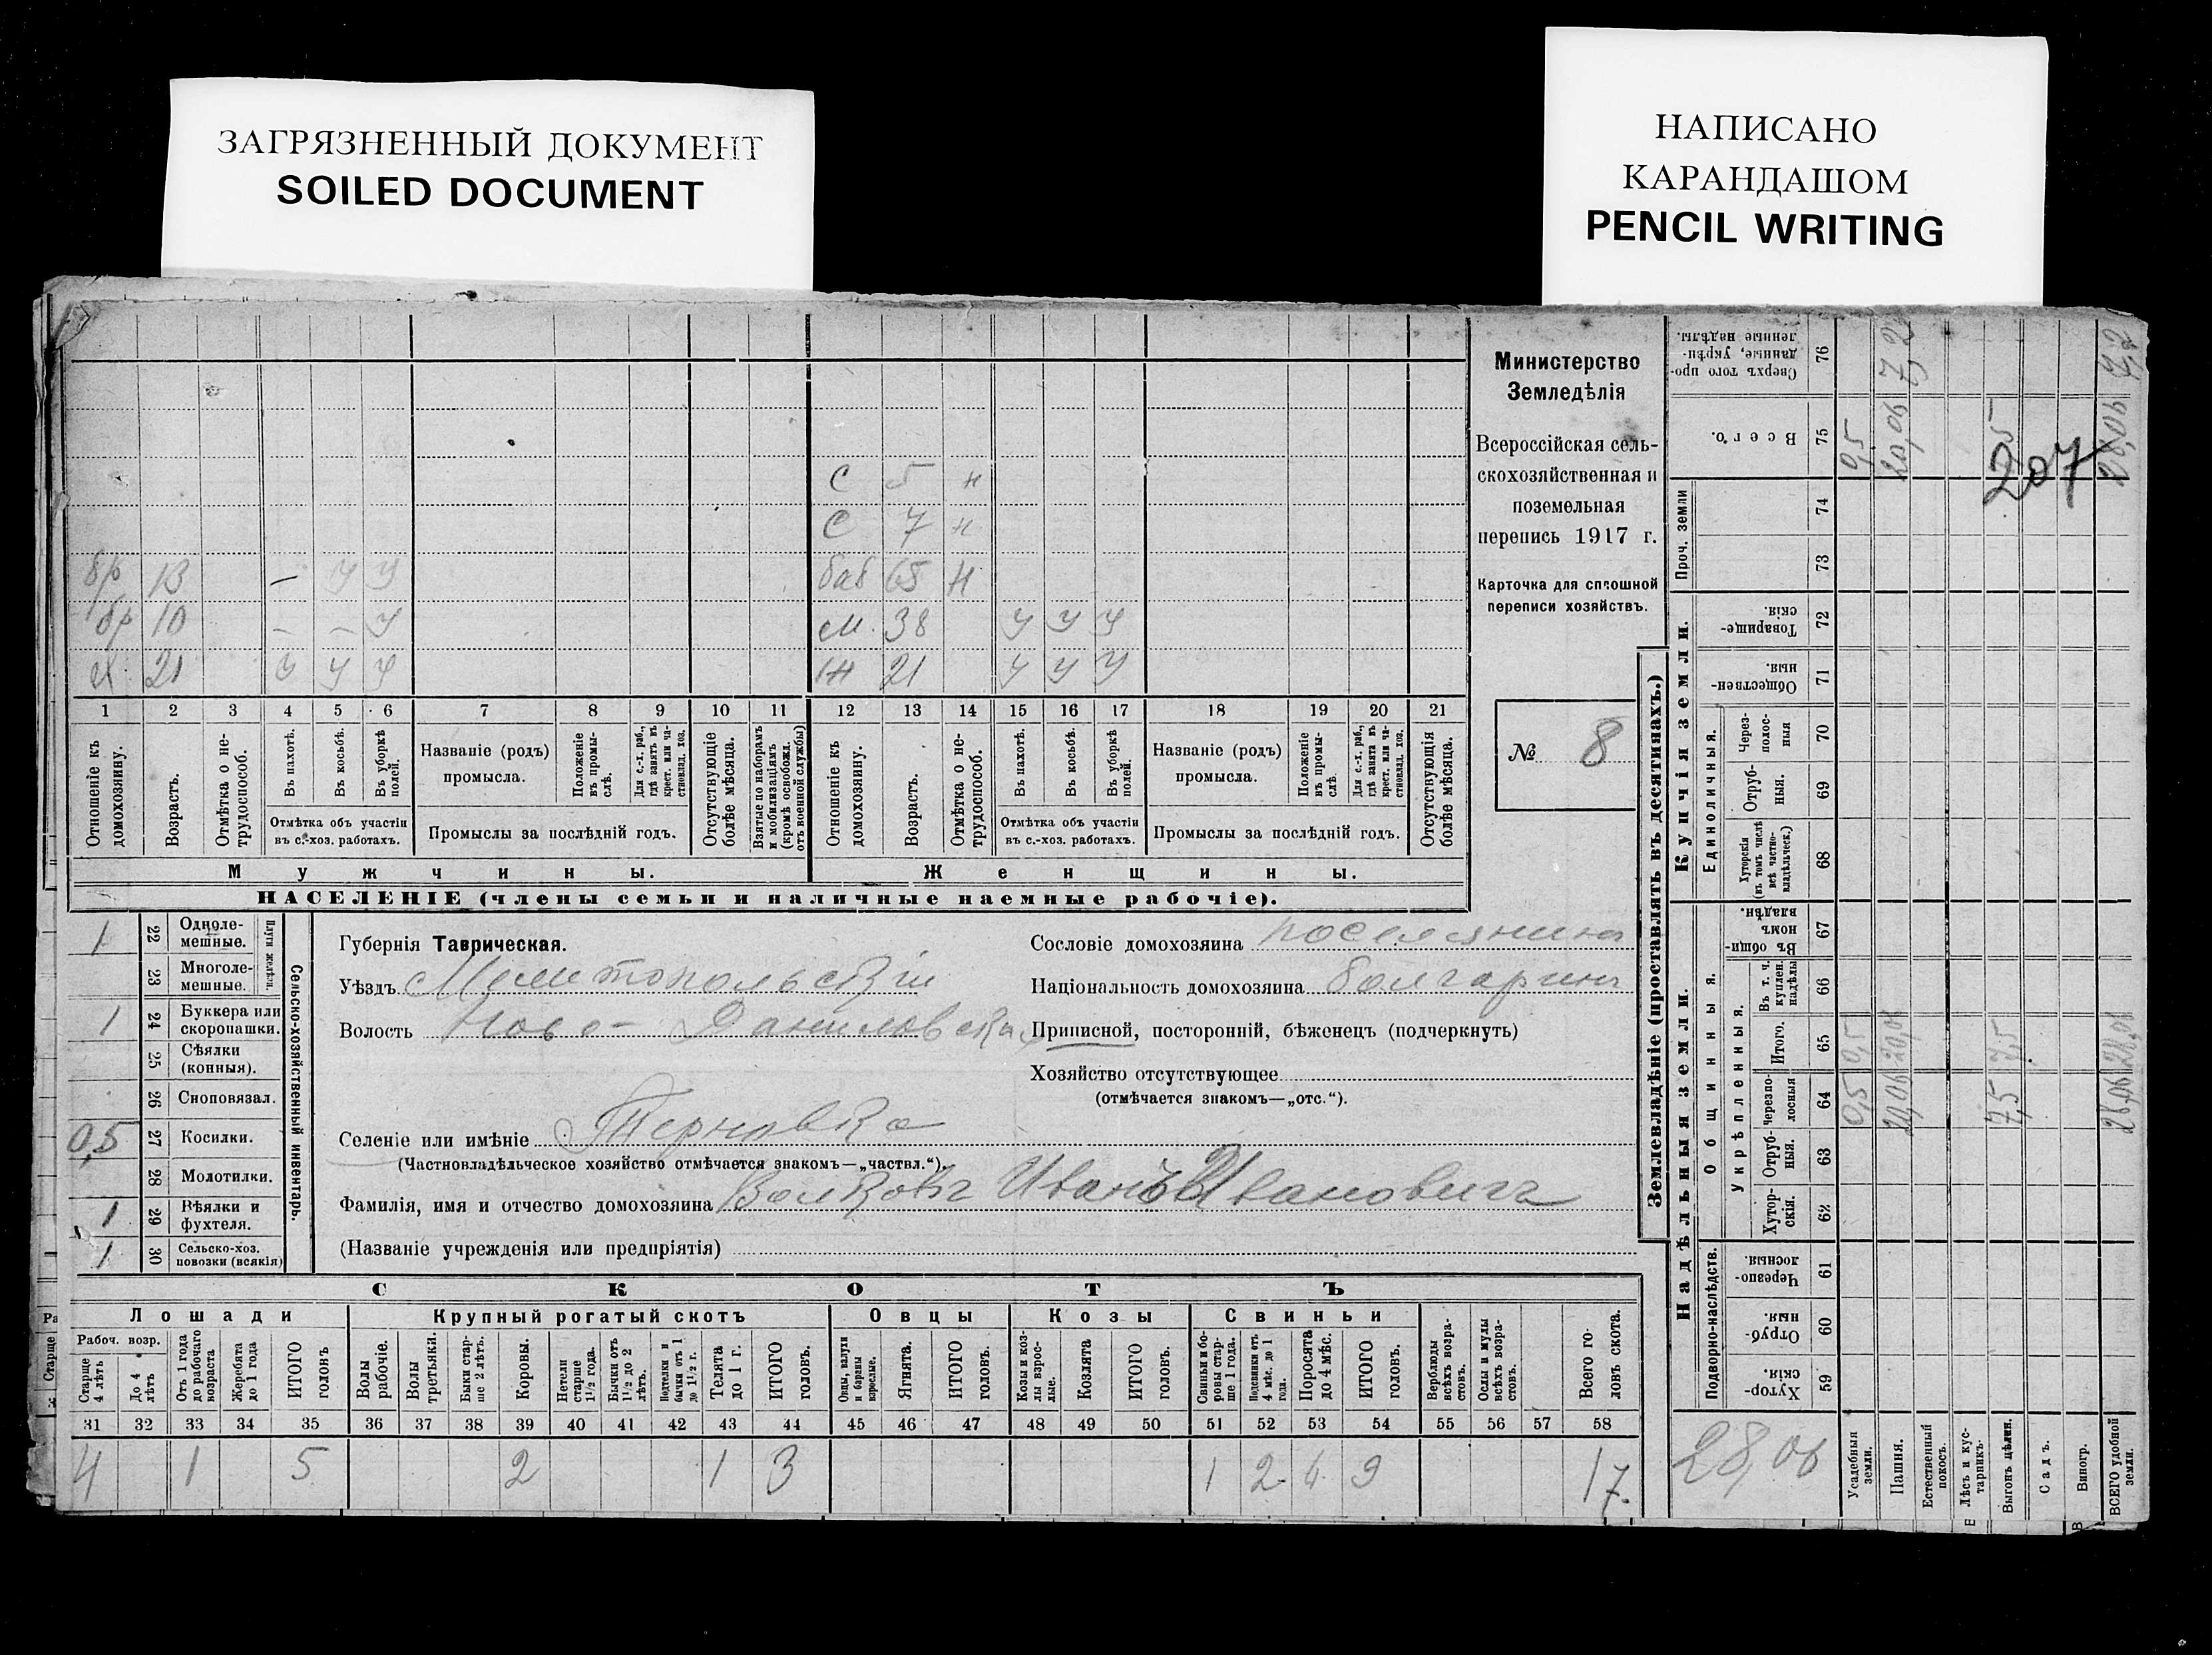 ЗАГРЯЗНЕННЫЙ ДОКУМЕНТ
SOILED DOCUMENT
НАПИСАНО
КАРАНДАШОМ
PENCIL WRITING
с 5 н
с 7 н
бр 13 — у у баб 65 н
бр 10 — — у м. 38 у у у
х. 21 у у у ж 21 у у у
1 2 3 4 5 6 7 8 9 10 11 12 13 14 15 16 17 18 19 20 21
Отношеніе къ домохозяину.
Возрастъ.
Отмѣтка о нетрудоспособ.
Въ пахотѣ.
Въ косьбѣ.
Въ уборкѣ полей.
Отмѣтка объ участіи
въ с.-хоз. работахъ.
Названіе (родъ)
промысла.
Положеніе въ промыслѣ.
Для с.-х. раб., гдѣ занятъ въ крест. или частновлад. хоз.
Промыслы за послѣдній годъ.
Отсутствующіе болѣе мѣсяца.
Взятые по наборамъ и мобилизаціямъ (кромѣ освобожд. отъ военной службы)
Отношеніе къ домохозяину.
Возрастъ.
Отмѣтка о нетрудоспособ.
Въ пахотѣ.
Въ косьбѣ.
Въ уборкѣ полей.
Отмѣтка объ участіи
въ с.-хоз. работахъ.
Названіе (родъ)
промысла.
Положеніе въ промыслѣ.
Для с.-х. раб., гдѣ занята въ крест. или частновлад. хоз.
Промыслы за послѣдній годъ.
Отсутствующія болѣе мѣсяца.
Мужчины.
Женщины.
НАСЕЛЕНІЕ (члены семьи и наличные наемные рабочіе).
Министерство
Земледѣлія
Всероссійская сель-
скохозяйственная и
поземельная
перепись 1917 г.
Карточка для сплошной
переписи хозяйствъ.
№ 8
1 22 Однолемешные.
23 Многолемешные.
Плуги желѣзн.
1 24 Буккера или скоропашки.
25 Сѣялки (конныя).
26 Сноповязал.
0,5 27 Косилки.
28 Молотилки.
1 29 Вѣялки и фухтеля.
1 30 Сельско-хоз. повозки (всякія)
Сельско-хозяйственный инвентарь.
Губернія Таврическая.
Уѣздъ Мелитопольскій
Волость Ново-Даниловская
Селеніе или имѣніе Терновка
(Частновладѣльческое хозяйство отмѣчается знакомъ—„частвл.“).
Фамилія, имя и отчество домохозяина Волковъ Иванъ Ивановичъ
(Названіе учрежденія или предпріятія)
Сословіе домохозяина поселянинъ
Національность домохозяина болгаринъ
Приписной, посторонній, бѣженецъ (подчеркнуть)
Хозяйство отсутствующее
(отмѣчается знакомъ—„отс.“).
СКОТЪ
Лошади Крупный рогатый скотъ Овцы Козы Свиньи
Рабоч. возр.
Старше 4 лѣтъ
До 4 лѣтъ
Отъ 1 года до рабочаго возраста
Жеребята до 1 года
ИТОГО головъ
Волы рабочіе.
Волы третьяки.
Быки старше 2 лѣтъ.
Коровы.
Нетели старше 1½ года.
Бычки отъ 1½ до 2 лѣтъ.
Подтелки и бычки отъ 1 до 1½ г.
Телята до 1 г.
ИТОГО головъ.
Овцы, валухи и бараны взрослые.
Ягнята.
ИТОГО головъ.
Козы и козлы взрослые.
Козлята
ИТОГО головъ.
Свиньи и боровы старше 1 года.
Подсвинки отъ 4 мѣс. до 1 года.
Поросята до 4 мѣс.
ИТОГО головъ.
Верблюды всѣхъ возрастовъ.
Ослы и мулы всѣхъ возрастовъ.
Всего головъ скота.
31 32 33 34 35 36 37 38 39 40 41 42 43 44 45 46 47 48 49 50 51 52 53 54 55 56 57 58
4 1 5 2 1 3 1 2 4 9 17.
Землевладѣніе (проставлять въ десятинахъ.)
Надѣльныя земли.
Купчія земли.
Проч. земли
Подворно-наслѣдств.
Общинныя.
Укрѣпленныя.
Единоличныя.
Хуторскія. 59
Отрубныя. 60
Черезполосныя. 61
Хуторскія. 62
Отрубныя. 63
Черезполосныя 64
Итого. 65
Въ т. ч. куплен. надѣлы 66
Въ общинномъ владѣн. 67
Хуторскія (въ томъ числѣ всѣ частновладѣльческ.) 68
Отрубныя. 69
Черезполосныя 70
Общественныя. 71
Товарищескія. 72
73
74
Всего. 75
Сверхъ того проданные, укрѣпленные надѣлы. 76
Усадебныя земли. 0,5 0,5 0,5
Пашня. 20,06 20,06 20,06 7,92
Естественный покосъ.
Лѣсъ и кустарникъ.
Выгонъ цѣлин. 7,5 7,5
Садъ.
Виногр.
ВСЕГО удобной земли. 28,06 28,06 28,06
28,06
207